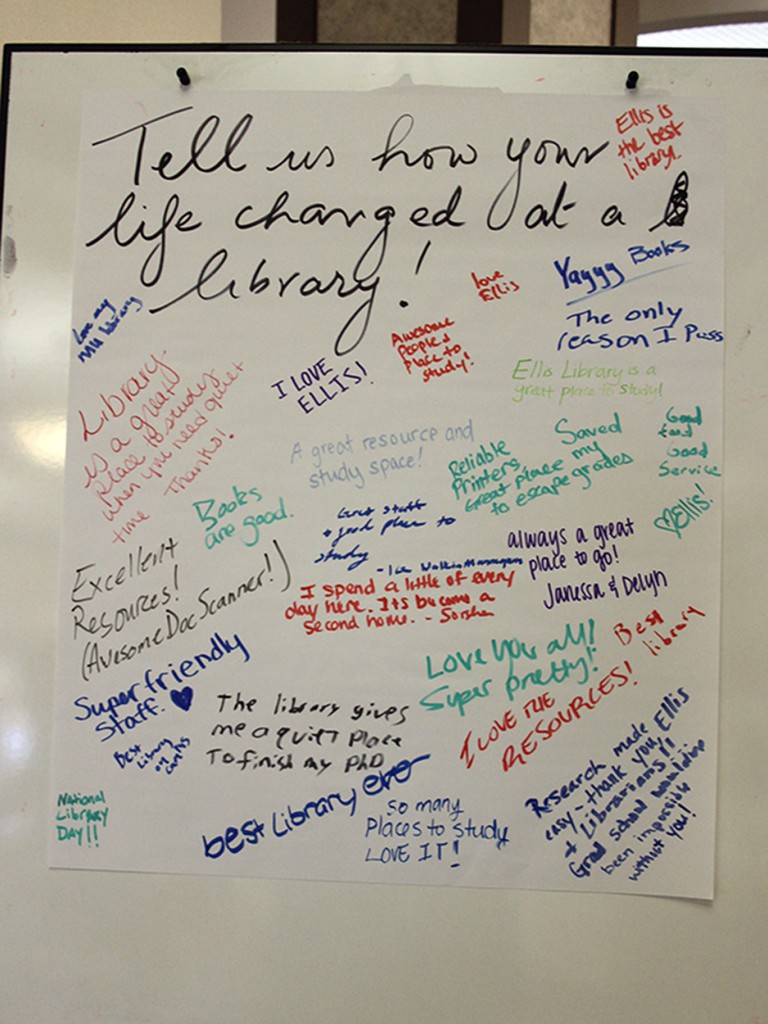 Tell us how your
life changed at a
library!
Ellis is
the best
library.
Love my
MU library
love
Ellis
Yayyy Books
The only
reason I Pass
Awesome
People &
Place to
study!
I LOVE
ELLIS!
Ellis Library is a
great place to study!
Library
is a great
Place to study
when you need quiet
time Thanks!
A great resource and
study space!
Reliable
Printers
Saved
my
grades
Great place
to escape
Good
food
Good
Service
Books
are good.
Great staff
+ good place to
study
♡Ellis!
always a great
place to go!
Janessa & Delyn
Excellent
Resources!
(Awesome Doc Scanner!)
I spend a little of every
day here. Its become a
second home. - Sorsha
Love you all!
Super pretty!
Best
library
Super friendly
Staff. ♥
Best
Library
on
campus
The library gives
me a quiet Place
To finish my PhD
I LOVE THE
RESOURCES!
Research made
easy - thank you, Ellis
+ Librarians!!
Grad school would've
been impossible
without you!
best Library ever
So many
Places to study
LOVE IT!
National
Library
DAY!!